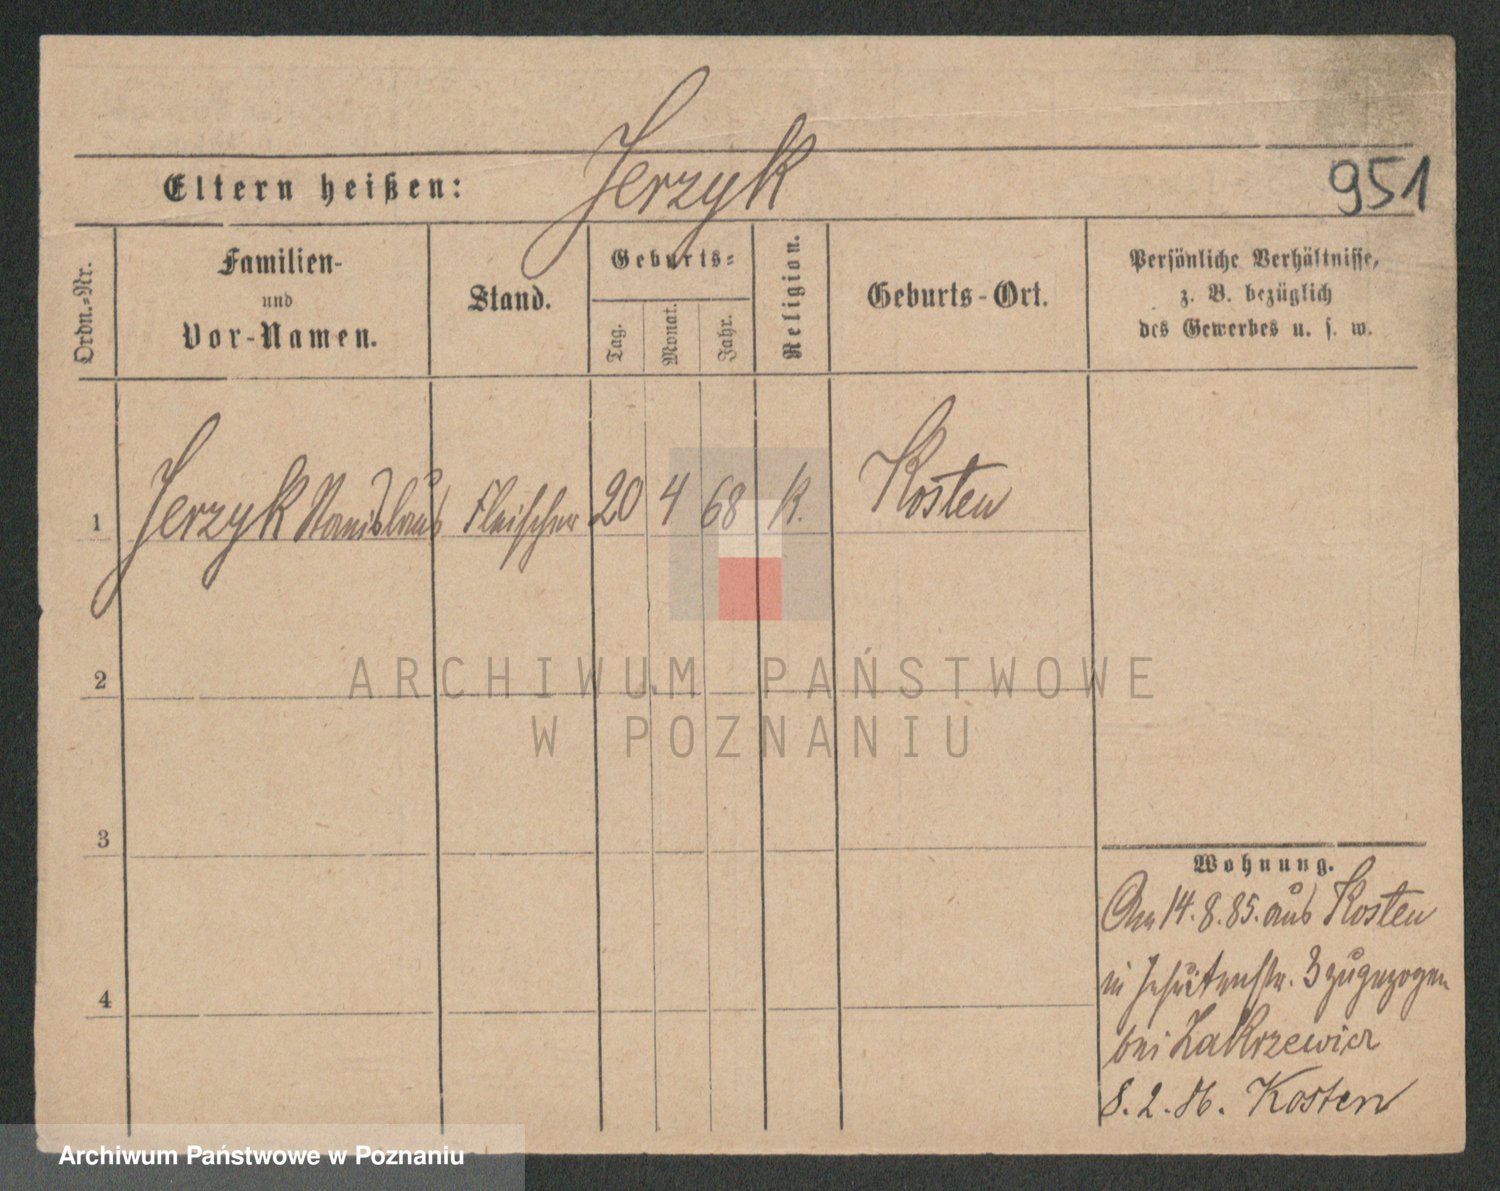 Jerzyk
Eltern heißen:
951
Ordn.-Nr.
Familien-
und
Vor-Namen.
Stand.
Geburts-
Tag.
Monat.
Jahr.
Religion.
Geburts-Ort.
Persönliche Verhältnisse,
z. B. bezüglich
des Gewerbes u. s. w.
1 Jerzyk Stanislaus Fleischer 20 4 68 k. Kosten
2
3
4
Wohnung.
Am 14.8.85. aus Kosten
in Jesuitenstr. 3 zugezogen
bei Zakrzewicz
8.2.86. Kosten
ARCHIWUM PAŃSTWOWE
W POZNANIU
Archiwum Państwowe w Poznaniu